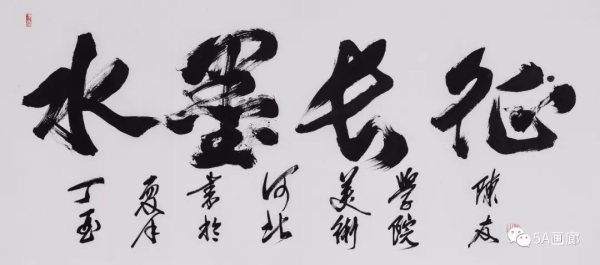 水墨长征
丁酉
夏月
書於
河北
美術
學院
陳友
5A画廊